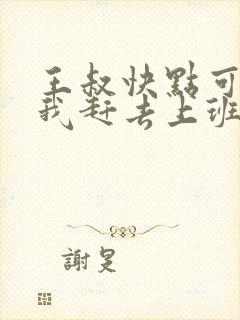 王叔快點可
我赶去上班
謝旻